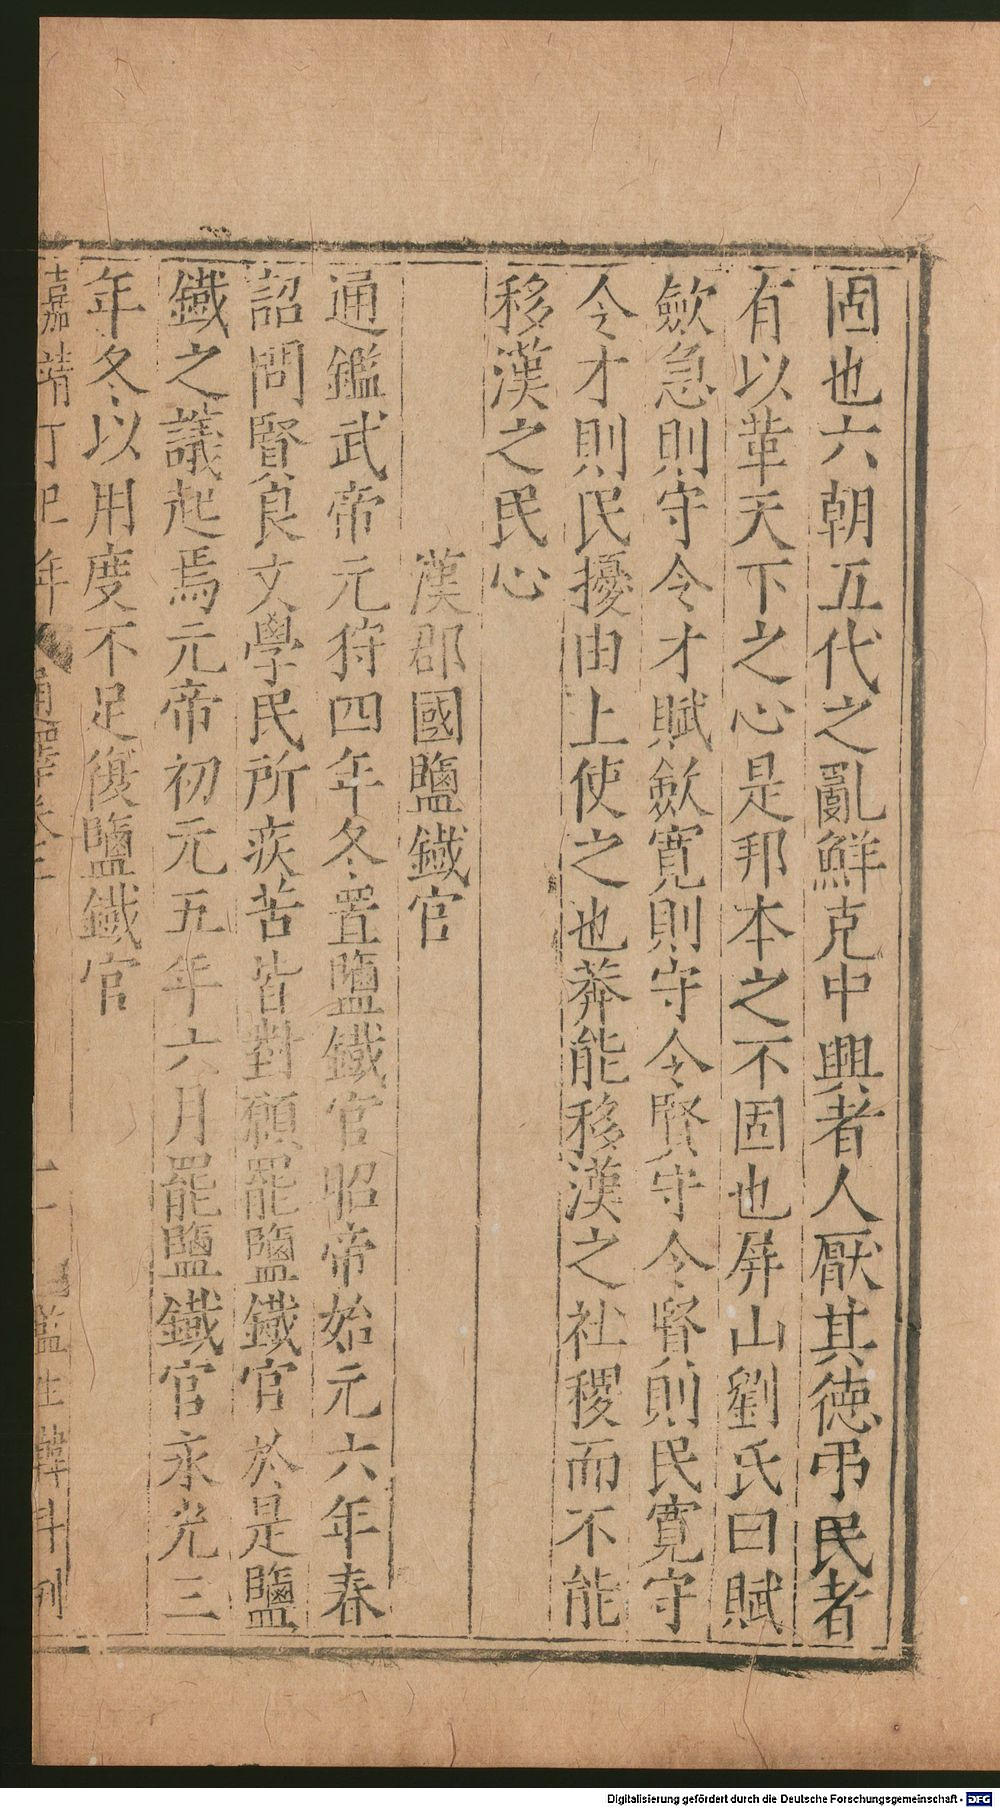 固也六朝五代之亂鮮克中興者人厭其徳弔民者
有以革天下之心是邦本之不固也屏山劉氏曰賦
歛急則守令才賦歛寛則守令賢守令賢則民寛守
令才則民擾由上使之也莽能移漢之社稷而不能
移漢之民心
漢郡國鹽鐵官
通鑑武帝元狩四年冬置鹽鐵官昭帝始元六年春
詔問賢良文學民所疾苦皆對願罷鹽鐵官於是鹽
鐵之議起焉元帝初元五年六月罷鹽鐵官永光三
年冬以用度不足復鹽鐵官
嘉靖丁巳年 通釋卷 監生韓 刊
Digitalisierung gefördert durch die Deutsche Forschungsgemeinschaft - DFG